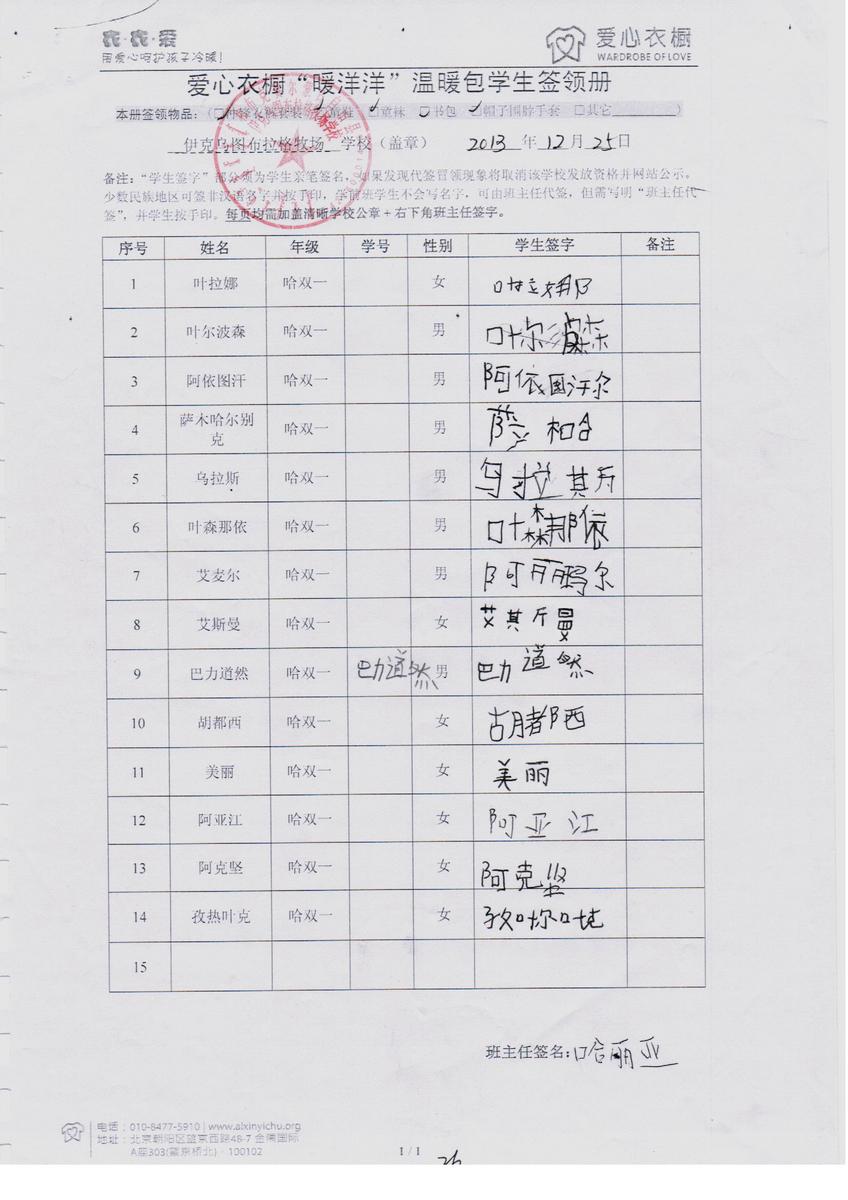 衣衣爱
用爱心呵护孩子冷暖!
爱心衣橱
WARDROBE OF LOVE
爱心衣橱“暖洋洋”温暖包学生签领册
本册签领物品：( 童鞋 □童袜 □书包 □帽子围脖手套 □其它 )
伊克乌图布拉格牧场 学校（盖章） 2013 年 12 月 25 日
备注：“学生签字”部分须为学生亲笔签名，如果发现代签冒领现象将取消该学校发放资格并网站公示。
少数民族地区可签非汉语名字并按手印，学前班学生不会写名字，可由班主任代签，但需写明“班主任代
签”，并学生按手印。每页均需加盖清晰学校公章+右下角班主任签字。
序号 姓名 年级 学号 性别 学生签字 备注
1 叶拉娜 哈双一 女 叶拉娜
2 叶尔波森 哈双一 男 叶尔波森
3 阿依图汗 哈双一 男 阿依图汗尔
4 萨木哈尔别
克 哈双一 男 萨
5 乌拉斯 哈双一 男 乌拉斯
6 叶森那依 哈双一 男 叶森那依
7 艾麦尔 哈双一 男
8 艾斯曼 哈双一 女 艾斯曼
9 巴力道然 哈双一 巴力道然 男 巴力道然
10 胡都西 哈双一 女 胡都西
11 美丽 哈双一 女 美丽
12 阿亚江 哈双一 女 阿亚江
13 阿克坚 哈双一 女 阿克坚
14 孜热叶克 哈双一 女
15
班主任签名：哈丽亚
电话：010-8477-5910 | www.aixinyichu.org
地址：北京朝阳区望京西路48-7 金隅国际
A座303(望京桥北)·100102
1 / 1